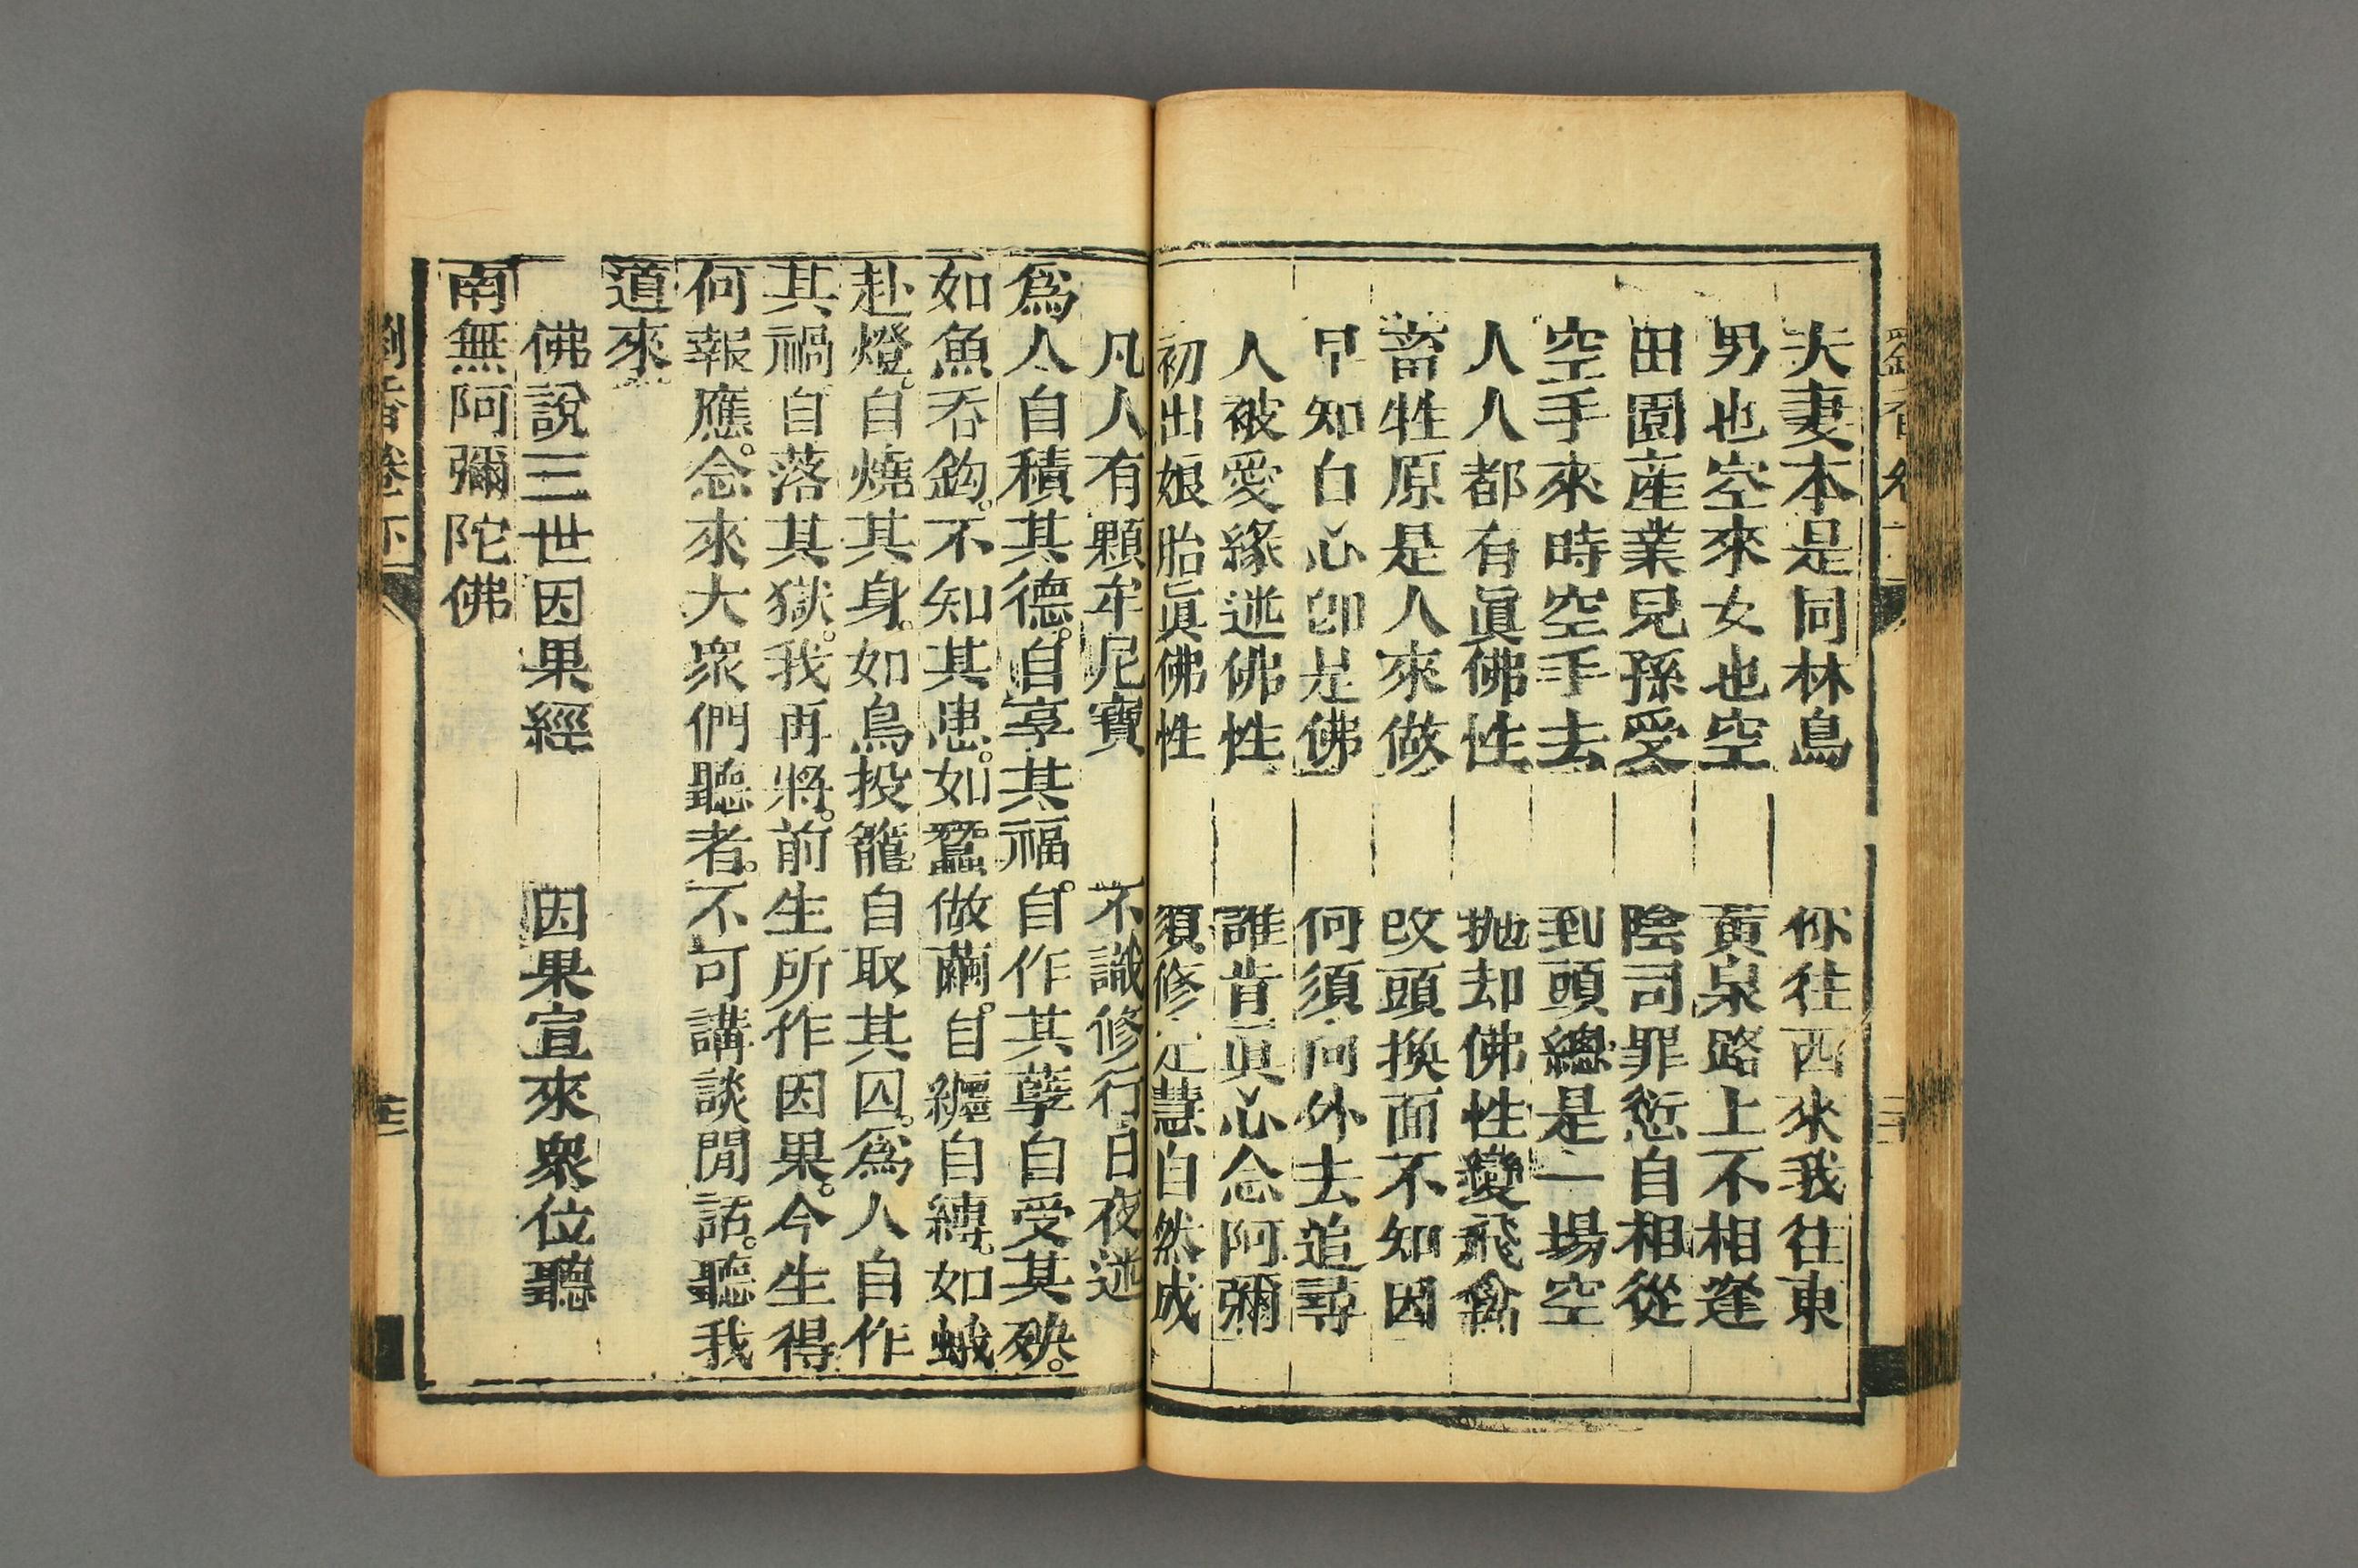 夫妻本是同林鳥　你往西來我往東
男也空來女也空　黃泉路上不相逢
田園產業兒孫受　陰司罪愆自相從
空手來時空手去　到頭總是一場空
人人都有眞佛性　抛却佛性變飛禽
畜牲原是人來做　改頭換面不知因
早知白心卽是佛　何須向外去追尋
人被愛緣迷佛性　誰肯眞心念阿彌
初出娘胎眞佛性　須修定慧自然成
凡人有顆牟尼寶　不識修行日夜迷
爲人自積其德。自享其福。自作其孽自受其殃。
如魚吞鈎。不知其患。如蠶做繭。自纏自縛。如蛾
赴燈。自燒其身。如鳥投籠自取其囚。爲人自作
其禍自落其獄。我再將。前生所作因果。今生得
何報應。念來大衆們聽者。不可講談閒話。聽我
道來
佛說三世因果經　因果宣來衆位聽
南無阿彌陀佛
劉香卷下